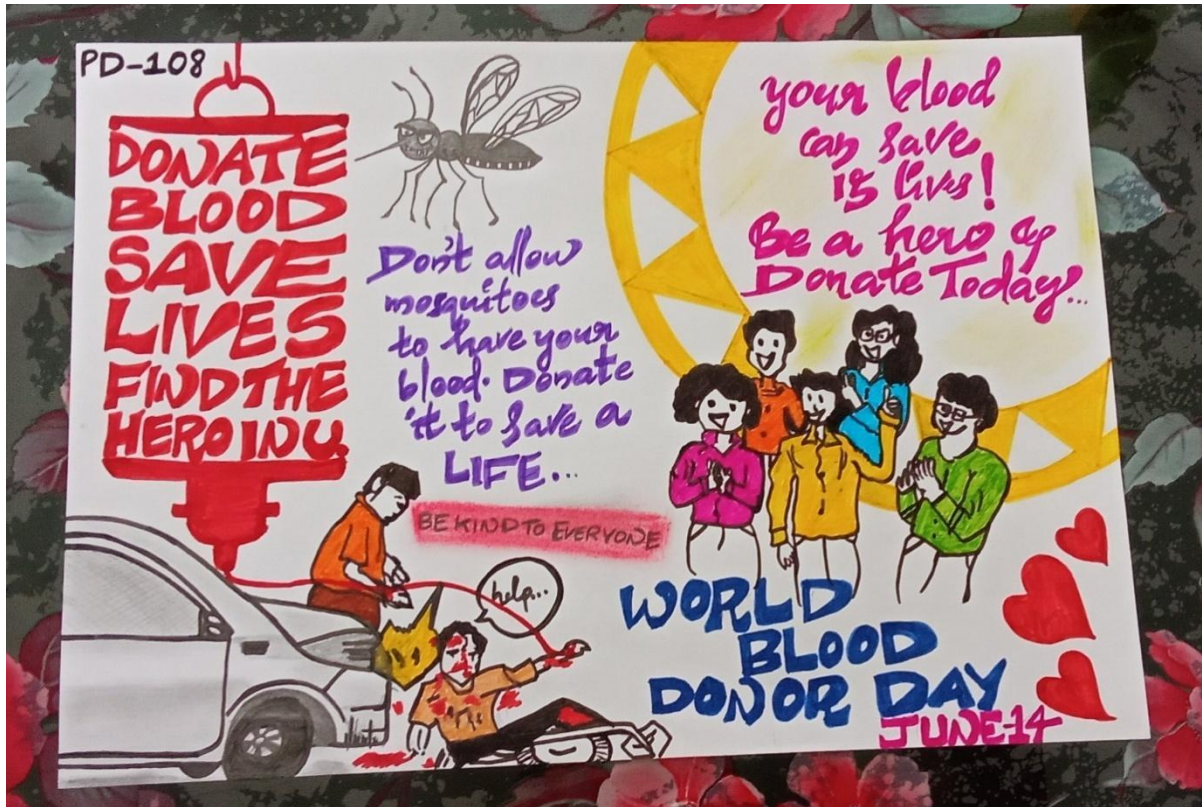 PD-108
DONATE
BLOOD
SAVE
LIVES
FIND THE
HERO IN U.
Don't allow
mosquitoes
to have your
blood. Donate
it to save a
LIFE...
your blood
can save
lives!
Be a hero
Donate Today...
BE KIND TO EVERYONE
help...
WORLD
BLOOD
DONOR DAY
JUNE-14